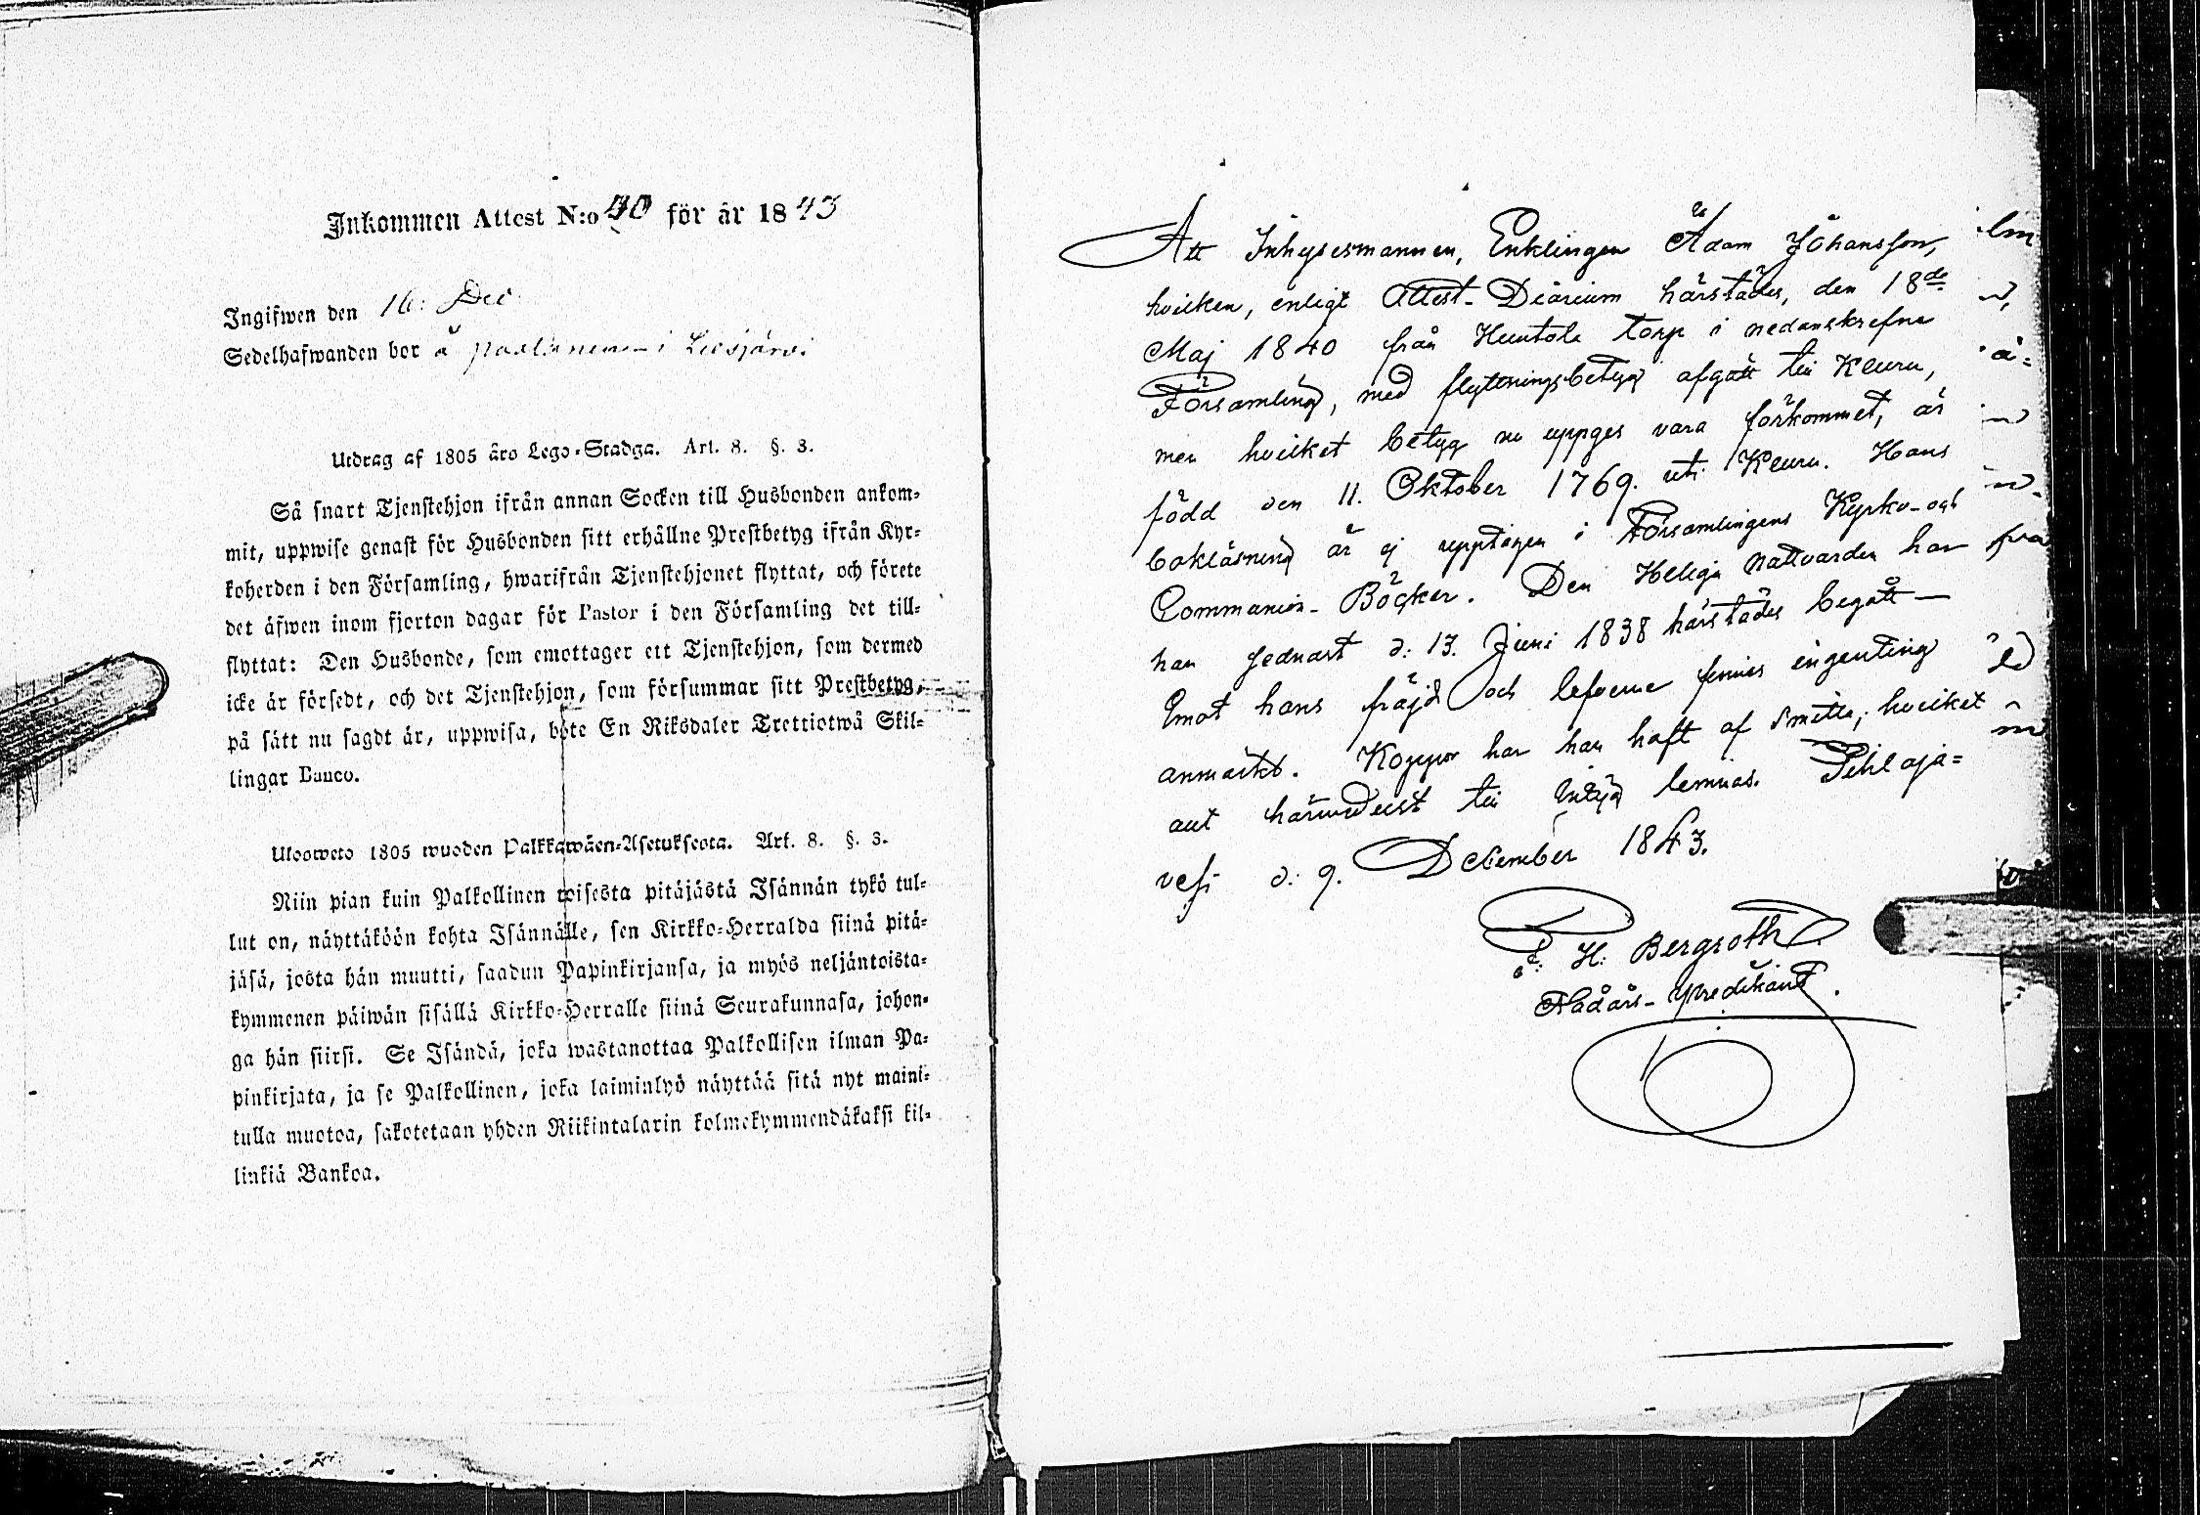 Inkommen Attest N:o 40 för år 1843
Ingifwen den 16: Dec:
Sedelhafwanden bor å i Liesjärvi
Utdrag af 1805 års Lego-Stadga. Art. 8. §. 3.
Så snart Tjenstehjon ifrån annan Socken till Husbonden ankom-
mit, uppwise genast för Husbonden sitt erhållne Prestbetyg ifrån Kyr-
koherden i den Församling, hwarifrån Tjenstehjonet flyttat, och förete
det äfwen inom fjorton dagar för Pastor i den Församling det till-
flyttat: Den Husbonde, som emottager ett Tjenstehjon, som dermed
icke är försedt, och det Tjenstehjon, som försummar sitt Prestbetyg,
på sätt nu sagdt är, uppwisa, böte En Riksdaler Trettiotwå Skil-
lingar Banco.
Ulosweto 1805 wuoden Palkkawäen-Asetuksesta. Art. 8. §. 3.
Niin pian kuin Palkollinen toisesta pitäjästä Isännän tykö tul-
lut on, näyttäköön kohta Isännälle, sen Kirkko-Herralda siinä pitä-
jäsä, josta hän muutti, saadun Papinkirjansa, ja myös neljäntoista-
kymmenen päiwän sisällä Kirkko-Herralle siinä Seurakunnasa, johon-
ga hän siirsi. Se Isändä, joka wastanottaa Palkollisen ilman Pa-
pinkirjata, ja se Palkollinen, joka laiminlyö näyttää sitä nyt maini-
tulla muotoa, sakotetaan yhden Riikintalarin kolmekymmendäkaksi kil-
linkiä Bankoa.
Att Inhysesmannen, Enklingen Adam Johansson,
hvilken, enligt Attest-Diarium härstädes, den 18de
Maj 1840 från Huutola torp i nedanskrefne
Församling, med flyttningsbetyg afgått till Keuru,
men hvilket betyg nu uppges vara förkommet, är
född den 11. Oktober 1769. uti Keuru. Hans
bokläsning är ej upptagen i Församlingens Kyrko- och
Communion-Böcker. Den Heliga Nattvarden har
han sednast d: 13. Juni 1838 härstädes begått —
Emot hans fräjd och lefverne finnes ingenting
anmärkt. Koppor har han haft af smitta; hvilket
allt härmedelst till intyg lemnas. Pihlaja=
vesi d: 9. December 1843.
H: Bergroth
Nådårs-Predikant.